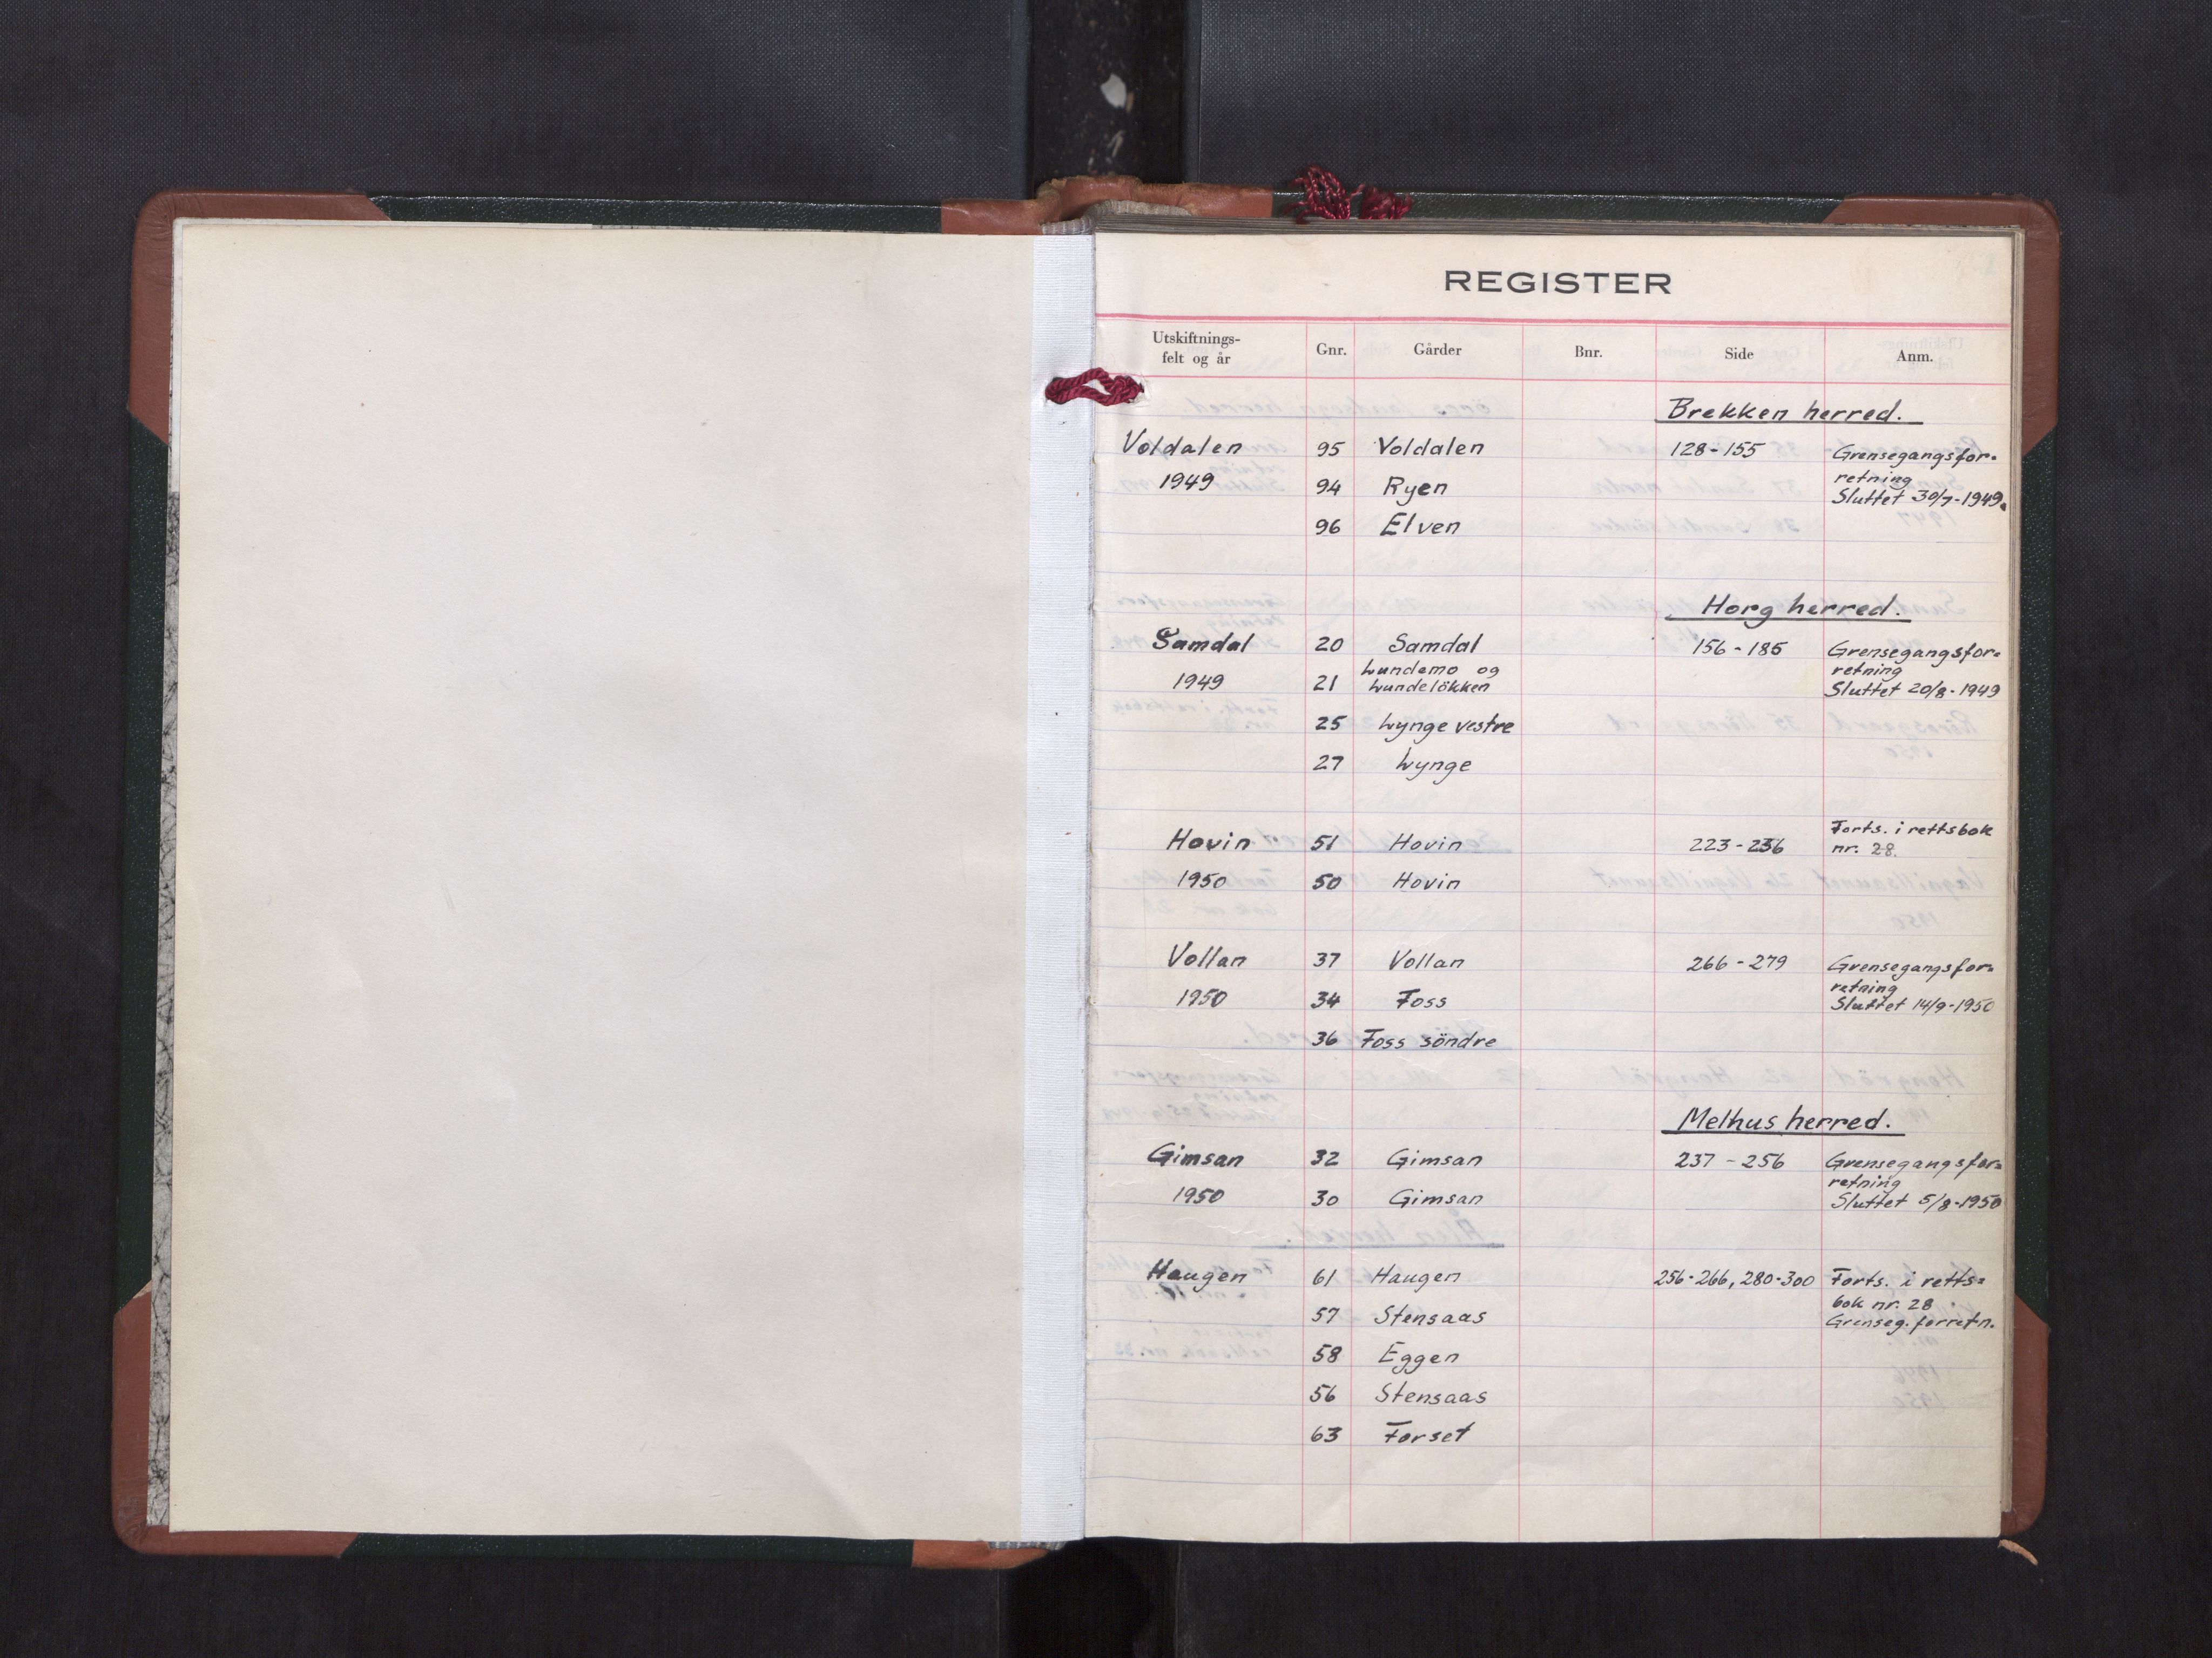 REGISTER
Utskiftnings-
felt og år Gnr. Gårder Bnr. Side Anm.
Brekken herred.
Voldalen 95 Voldalen 128-155 Grensegangsfor-
retning
1949 94 Ryen Sluttet 30/7-1949.
96 Elven
Horg herred.
Samdal 20 Samdal 156-185 Grensegangsfor-
Lundemo og retning
1949 21 Lundelökken Sluttet 20/8-1949
25 Lynge vestre
27 Lynge
Forts. i rettsbok
Hovin 51 Hovin 223-236 nr. 28.
1950 50 Hovin
Vollan 37 Vollan 266-279 Grensegangsfor-
retning
1950 34 Foss Sluttet 14/9-1950
36 Foss söndre
Melhus herred.
Gimsan 32 Gimsan 237-256 Grensegangsfor-
retning
1950 30 Gimsan Sluttet 5/8-1950
Haugen 61 Haugen 256-266, 280-300 Forts. i retts=
bok nr. 28
57 Stensaas Grenseg.forretn.
58 Eggen
56 Stensaas
63 Forset